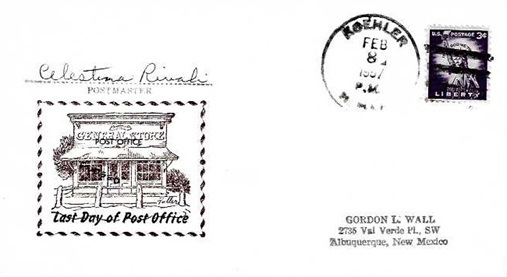 KOEHLER
FEB
8
1957
P.M.
U.S. POSTAGE 3¢
LIBERTY
Celestina Rivali
POSTMASTER
GENERAL STORE
POST OFFICE
Fuller
Last Day of Post Office
GORDON L. WALL
2735 Val Verde Pl., SW
Albuquerque, New Mexico